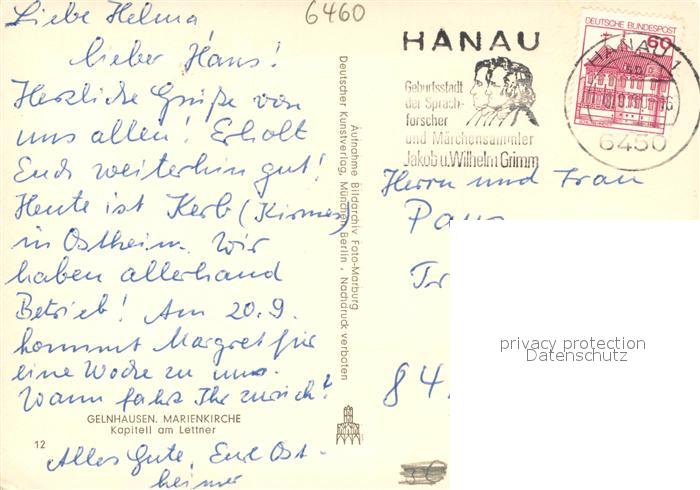 Liebe Helma
lieber Hans!
Herzliche Grüße von
uns allen! Erholt
Euch weiterhin gut!
Heute ist Kerb (Kirmes)
in Ostheim. Wir
haben allerhand
Betrieb! Am 20.9.
kommt Margret für
eine Woche zu uns.
Wann fahrt Ihr zurück?
GELNHAUSEN, MARIENKIRCHE
Kapitell am Lettner
12
Alles Gute, Eure Ost-
heimer
Aufnahme Bildarchiv Foto-Marburg
Deutscher Kunstverlag, München Berlin, Nachdruck verboten
6460
HANAU
Geburtsstadt
der Sprach-
forscher
und Märchensammler
Jakob u. Wilhelm Grimm
DEUTSCHE BUNDESPOST
60
HANAU 1
6450
Herrn und Frau
Pau
Tr
84
privacy protection
Datenschutz